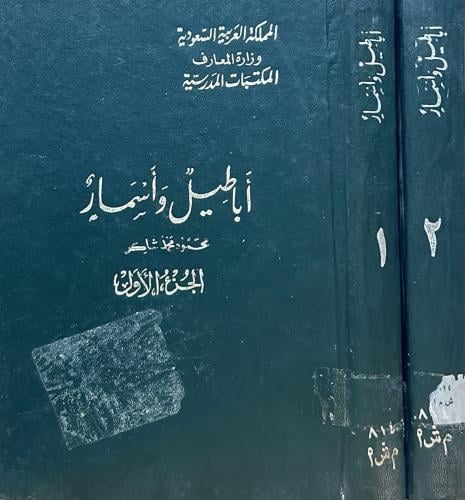 المملكة العربية السعودية
وزارة المعارف
المكتبات المدرسية
أباطيل وأسمار
محمود محمد شاكر
الجزء الأول
أباطيل وأسمار
١
٨١٤
م ش أ
أباطيل وأسمار
٢
٨١٤
م ش أ